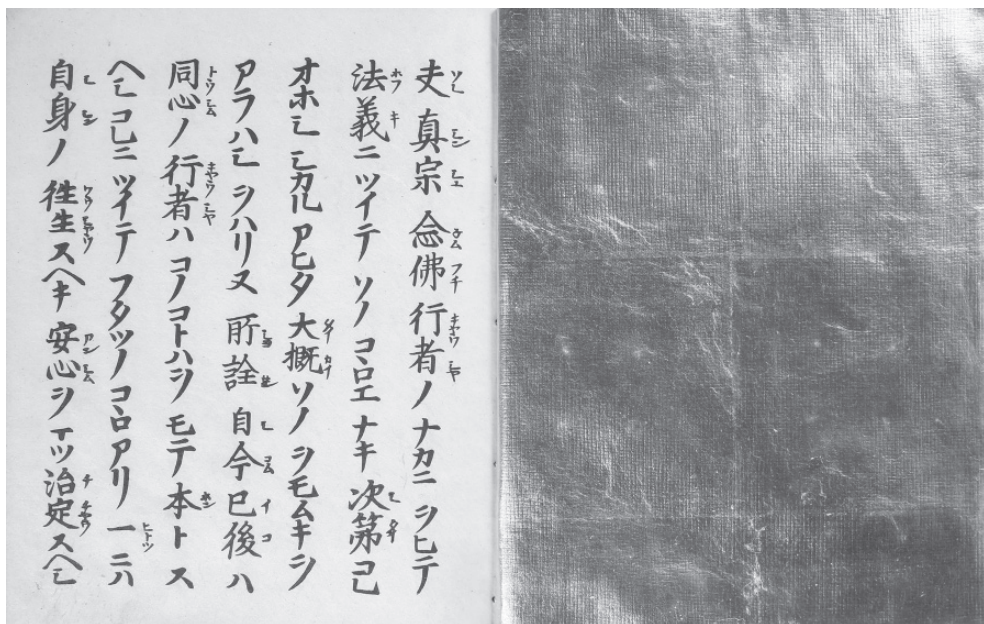 夫真宗念佛行者ノナカニヲヒテ
法義ニツイテソノコヽロエナキ次第コレ
オホシシカルアヒタ大概ソノヲモムキヲ
アラハシヲハリヌ所詮自今已後ハ
同心ノ行者ハコノコトハヲモテ本トス
ヘシコレニツイテフタツノコヽロアリ一ニハ
自身ノ往生スヘキ安心ヲマツ治定スヘシ